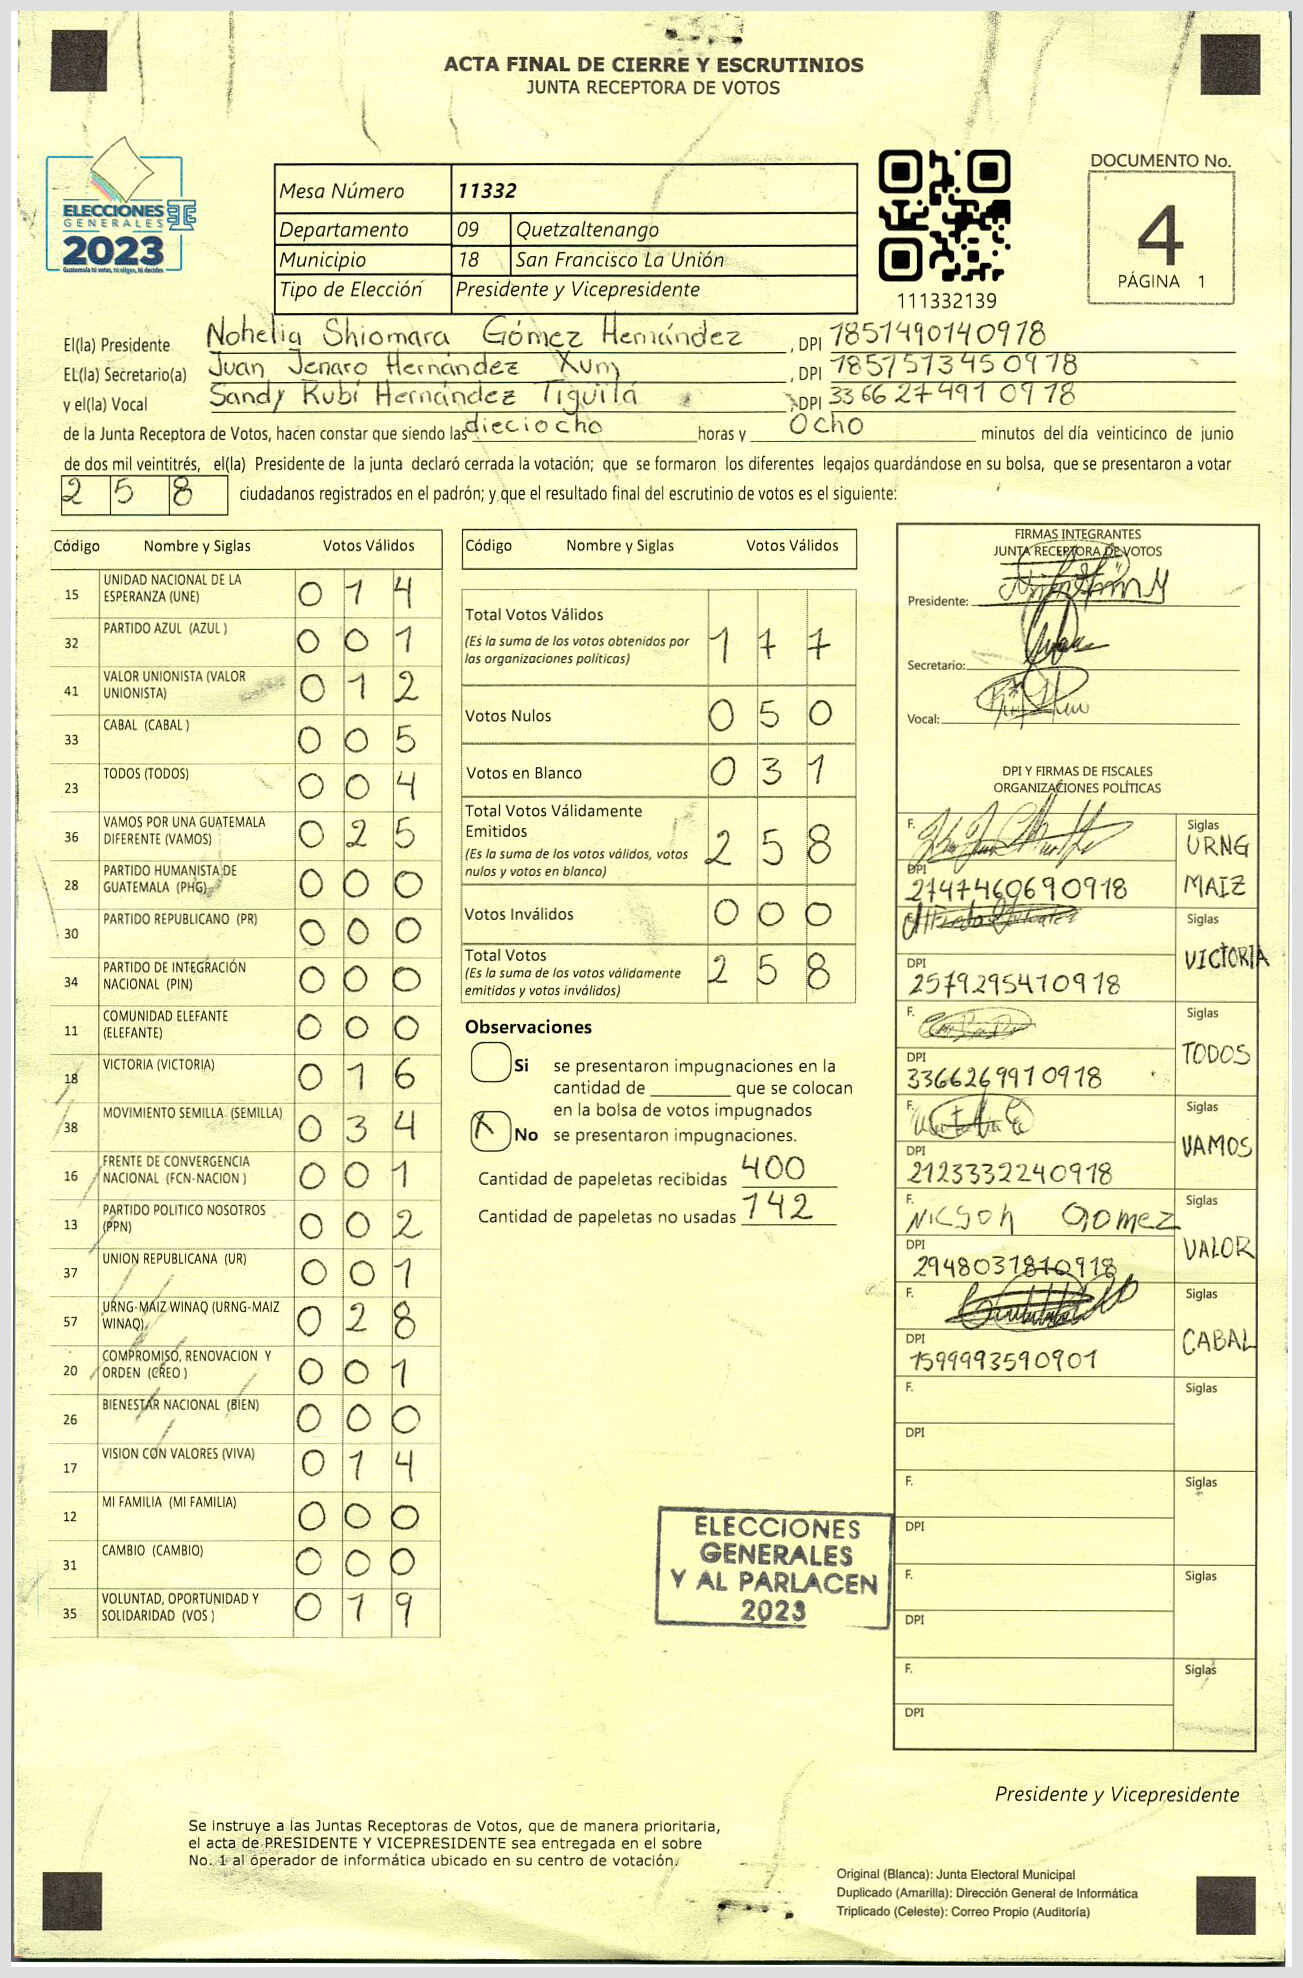 ACTA FINAL DE CIERRE Y ESCRUTINIOS
JUNTA RECEPTORA DE VOTOS
ELECCIONES
GENERALES
2023
Guatemala tú votas, tú eliges, tú decides
Mesa Número 11332
Departamento 09 Quetzaltenango
Municipio 18 San Francisco La Unión
Tipo de Elección Presidente y Vicepresidente
111332139
DOCUMENTO No.
4
PÁGINA 1
El(la) Presidente Nohelia Shiomara Gómez Hernández, DPI 1851490140918
EL(la) Secretario(a) Juan Jenaro Hernández Xum, DPI 1857573450918
y el(la) Vocal Sandy Rubí Hernández Tiguilá, DPI 3366274910918
de la Junta Receptora de Votos, hacen constar que siendo las dieciocho horas y Ocho minutos del día veinticinco de junio
de dos mil veintitrés, el(la) Presidente de la junta declaró cerrada la votación; que se formaron los diferentes legajos guardándose en su bolsa, que se presentaron a votar
258 ciudadanos registrados en el padrón; y que el resultado final del escrutinio de votos es el siguiente:
Código Nombre y Siglas Votos Válidos
15 UNIDAD NACIONAL DE LA ESPERANZA (UNE) 014
32 PARTIDO AZUL (AZUL ) 001
41 VALOR UNIONISTA (VALOR UNIONISTA) 012
33 CABAL (CABAL ) 005
23 TODOS (TODOS) 004
36 VAMOS POR UNA GUATEMALA DIFERENTE (VAMOS) 025
28 PARTIDO HUMANISTA DE GUATEMALA (PHG) 000
30 PARTIDO REPUBLICANO (PR) 000
34 PARTIDO DE INTEGRACIÓN NACIONAL (PIN) 000
11 COMUNIDAD ELEFANTE (ELEFANTE) 000
18 VICTORIA (VICTORIA) 016
38 MOVIMIENTO SEMILLA (SEMILLA) 034
16 FRENTE DE CONVERGENCIA NACIONAL (FCN-NACION ) 001
13 PARTIDO POLITICO NOSOTROS (PPN) 002
37 UNION REPUBLICANA (UR) 001
57 URNG-MAIZ WINAQ (URNG-MAIZ WINAQ) 028
20 COMPROMISO, RENOVACION Y ORDEN (CREO ) 001
26 BIENESTAR NACIONAL (BIEN) 000
17 VISION CON VALORES (VIVA) 014
12 MI FAMILIA (MI FAMILIA) 000
31 CAMBIO (CAMBIO) 000
35 VOLUNTAD, OPORTUNIDAD Y SOLIDARIDAD (VOS ) 019
Código Nombre y Siglas Votos Válidos
Total Votos Válidos 177
(Es la suma de los votos obtenidos por
las organizaciones políticas)
Votos Nulos 050
Votos en Blanco 031
Total Votos Válidamente
Emitidos 258
(Es la suma de los votos válidos, votos
nulos y votos en blanco)
Votos Inválidos 000
Total Votos 258
(Es la suma de los votos válidamente
emitidos y votos inválidos)
Observaciones
Si se presentaron impugnaciones en la
cantidad de ________ que se colocan
en la bolsa de votos impugnados
X No se presentaron impugnaciones.
Cantidad de papeletas recibidas 400
Cantidad de papeletas no usadas 142
ELECCIONES
GENERALES
Y AL PARLACEN
2023
FIRMAS INTEGRANTES
JUNTA RECEPTORA DE VOTOS
Presidente:
Secretario:
Vocal:
DPI Y FIRMAS DE FISCALES
ORGANIZACIONES POLÍTICAS
F. Siglas URNG
DPI 2747460690918 MAIZ
F. Siglas VICTORIA
DPI 2579295410918
F. Siglas TODOS
DPI 3366269910918
F. Siglas VAMOS
DPI 2123332240918
F. Nicson Gomez Siglas VALOR
DPI 2948031810918
F. Siglas CABAL
DPI 1599993590901
F. Siglas
DPI
F. Siglas
DPI
F. Siglas
DPI
F. Siglas
DPI
Presidente y Vicepresidente
Se instruye a las Juntas Receptoras de Votos, que de manera prioritaria,
el acta de PRESIDENTE Y VICEPRESIDENTE sea entregada en el sobre
No. 1 al operador de informática ubicado en su centro de votación.
Original (Blanca): Junta Electoral Municipal
Duplicado (Amarilla): Dirección General de Informática
Triplicado (Celeste): Correo Propio (Auditoría)